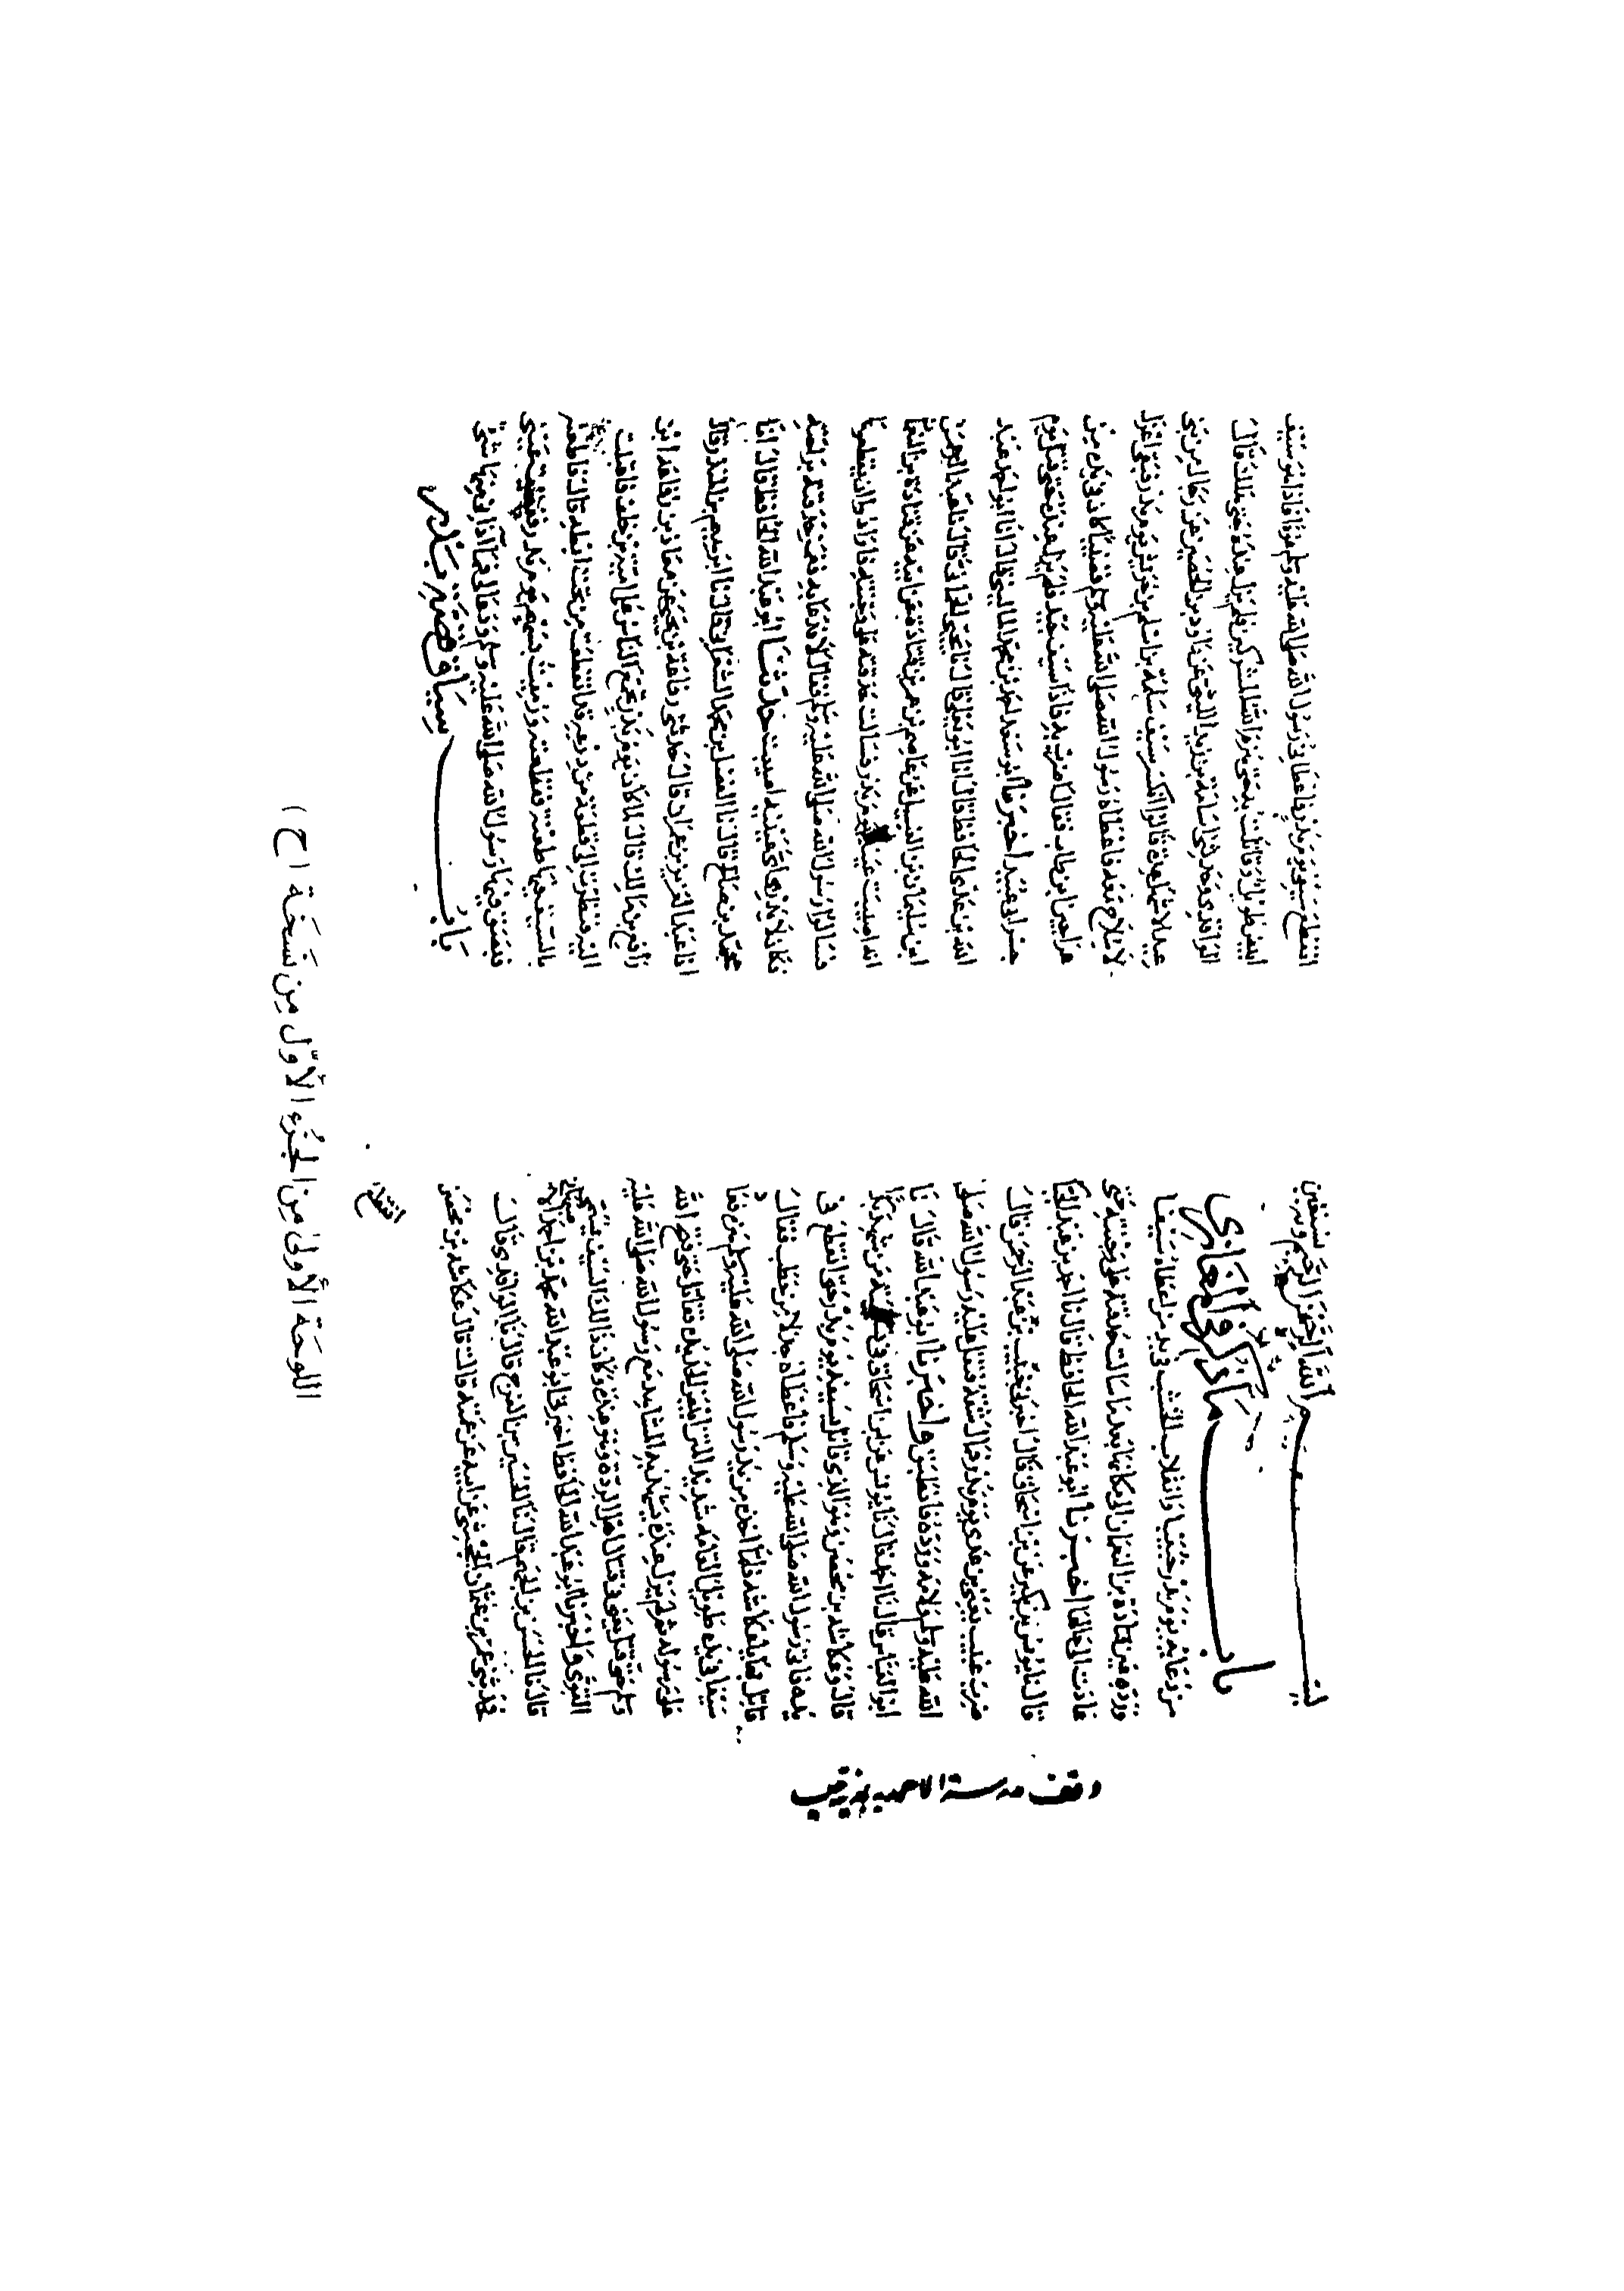 بسم الله الرحمن الرحيم وبه نستعين
باب ما ذكر في المغازي
من دعائه يوم بدر خبيبا وانقلاب الخشب في يد من اعطاه سيفا
ورده عين قتادة بن النعمان الى مكانها بعد ما سالت حدقته على وجنته حتى
عادت الى حالها اخبرنا ابو عبد الله الحافظ قال نا احمد بن عبد الجبار
قال نا يونس بن بكير عن ابن اسحاق قال اخبرني خبيب بن عبد الرحمن قال
ضرب خبيب يعني بن عدي يوم بدر فمال شقه فتفل عليه رسول الله صلى
الله عليه وسلم ولامه ورده فانطبق واخبرنا ابو عبد الله قال نا
ابو العباس قال نا احمد قال نا يونس عن ابن اسحاق في تسمية من شهد بدرا
قال وعكاشة بن محصن وهو الذي قاتل بسيفه يوم بدر حتى انقطع في
يده فاتى رسول الله صلى الله عليه وسلم فاعطاه جذلا من حطب فقال
قاتل بها يا عكاشة فلما اخذه من يد رسول الله صلى الله عليه وسلم هزه فعاد
سيفا في يده طويل القامة شديد المتن ابيض الحديدة فقاتل حتى فتح الله
على رسوله ثم لم يزل عنده يشهد به المشاهد مع رسول الله صلى الله عليه
وسلم حتى قتل يعني في قتال اهل الردة وهو عنده وكان ذلك السيف يسمى
القوي واخبرنا ابو عبد الله الحافظ اخبرنا ابو عبد الله محمد بن احمد الاصبهاني
قال نا الحسن بن الجهم قال نا الحسين بن الفرج قال نا الواقدي قال
حدثني عمر بن عثمان الجحشي عن ابيه عن عمته قالت قال عكاشة بن محصن
انقطع
وقف مدرسة الاحمديه
انقطع سيفي يوم بدر فاعطاني رسول الله صلى الله عليه وسلم عودا فاذا هو سيف
ابيض طويل وقاتلت به حتى هزم الله المشركين فلم يزل عنده حتى هلك قال
الواقدي وحدثني اسامة بن زيد الليثي عن داود بن الحصين عن رجال من بني
عبد الاشهل عدة قالوا انكسر سيف سلمة بن اسلم بن حريش يوم بدر فبقي اعزل
لا سلاح معه فاعطاه رسول الله صلى الله عليه وسلم قضيبا كان في يده من
عراجين ابن طاب فقال اضرب به فاذا سيف جيد فلم يزل عنده حتى قتل يوم
جسر ابو عبيد اخبرنا ابو سعد احمد بن محمد الماليني قال انا ابو احمد عبد
الله بن عدي الحافظ قال انا ابو يعلى قال نا يحيى الحماني قال نا عبد الرحمن
ابن سليمان بن الغسيل عن عاصم بن عمر بن قتادة عن ابيه عن قتادة بن النعمان
انه اصيبت عينه يوم بدر فسالت حدقته على وجنته فارادوا ان يقطعوها
فسالوا رسول الله صلى الله عليه وسلم فقال لا فدعا به فغمز حدقته براحته
فكان لا يدري اي عينيه اصيبت حدثنا ابو عبد الله الحافظ قال انا
محمد بن صالح قال نا الفضل بن محمد الشعراني قال نا ابراهيم بن المنذر قال
انا عبد العزيز بن عمران قال حدثني رفاعة بن يحيى عن معاذ بن رفاعة بن
رافع بن مالك قال لما كان يوم بدر تجمع الناس على امية بن خلف فاقبلت
اليه فنظرت الى قطعة من درعه قد انقطعت من تحت ابطه قال فاطعنه
بالسيف فيها طعنة فقتلته ورميت بسهم يوم بدر ففقئت عيني
فبصق فيها رسول الله صلى الله عليه وسلم ودعا لي فما اذاني منها شيء
باب سياق قصة بدر
اللوحة الأولى من الجزء الأوّل من نسخة ( ح )